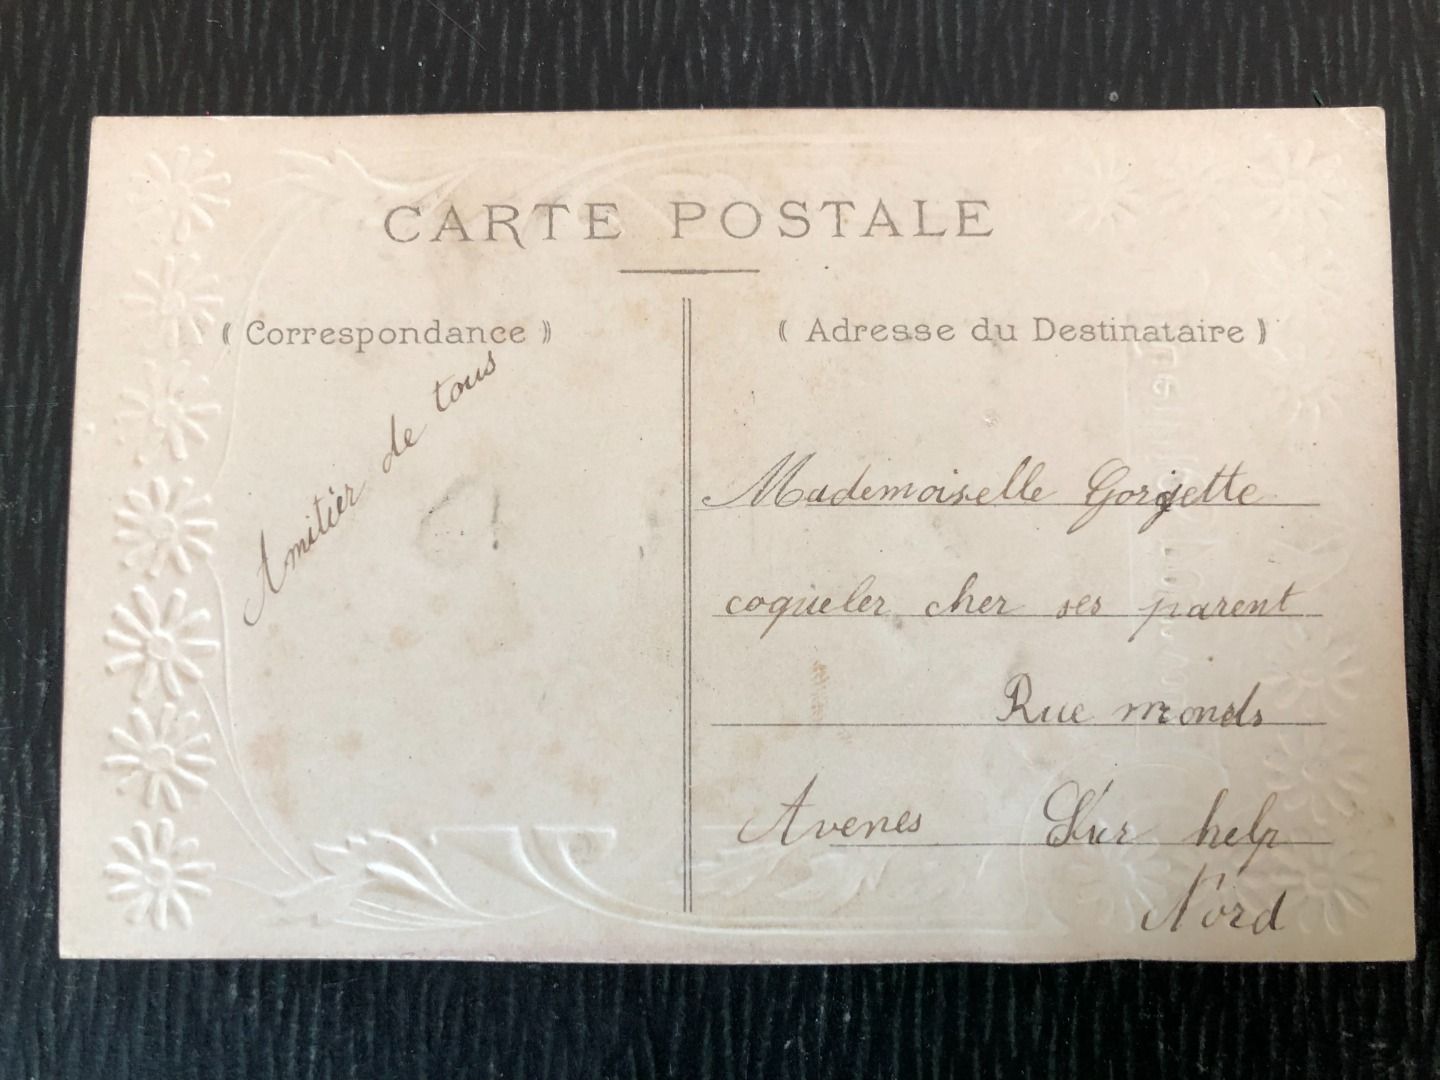 CARTE POSTALE
( Correspondance )
( Adresse du Destinataire )
Amitier de tous
Mademoiselle Gorgette
coqueler cher ses parent
Rue monds
Avenes Sur help
Nord